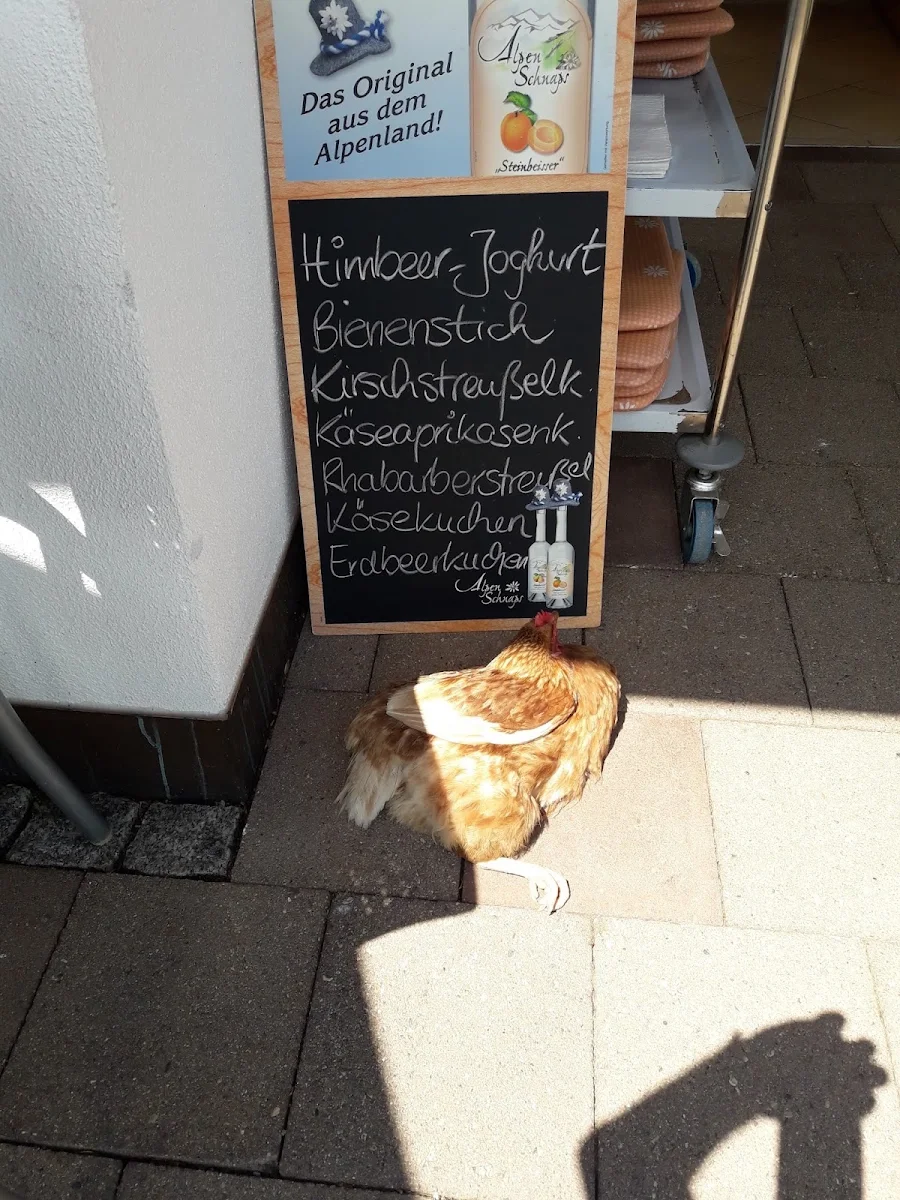 Das Original
aus dem
Alpenland!
Alpen
Schnaps
"Steinbeisser"
Himbeer-Joghurt
Bienenstich
Kirschstreußelk.
Käseaprikosenk.
Rhabarberstreußel
Käsekuchen
Erdbeerkuchen
Alpen
Schnaps